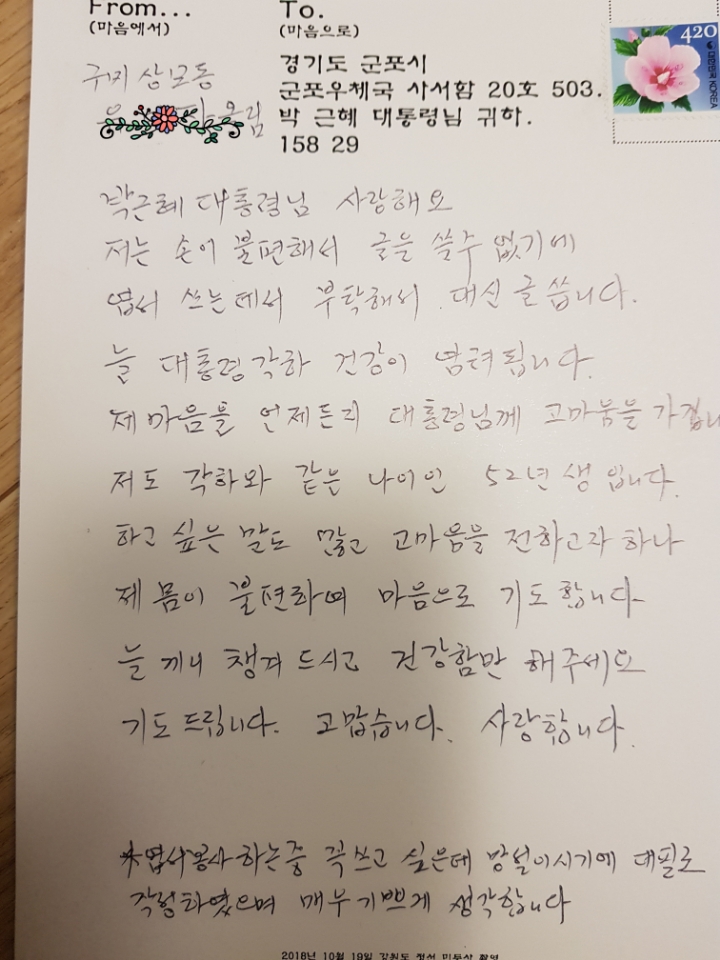 From... To.
(마음에서) (마음으로)
420
대한민국 KOREA
경기도 군포시
군포우체국 사서함 20호 503.
박 근혜 대통령님 귀하.
158 29
구미 상모동
올림
박근혜 대통령님 사랑해요
저는 손이 불편해서 글을 쓸수 없기에
엽서 쓰는데서 부탁해서 대신 글 씁니다.
늘 대통령각하 건강이 염려됩니다.
제마음을 언제든지 대통령님께 고마움을 가집니
저도 각하와 같은 나이인 52년생입니다.
하고 싶은 말도 많고 고마움을 전하고자 하나
제 몸이 불편하며 마음으로 기도합니다
늘 끼니 챙겨 드시고 건강함만 해주세요
기도드립니다. 고맙습니다. 사랑합니다.
*엽서봉사하는중 꼭쓰고 싶은데 망설이시기에 대필로
작성하였으며 매우기쁘게 생각합니다
2018년 10월 19일 강원도 정선 민둥산 촬영